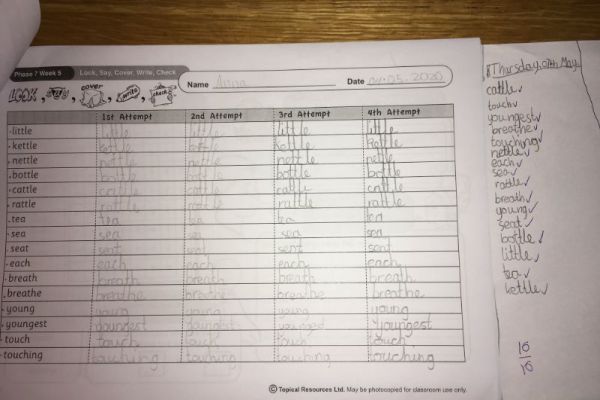 Phase ? Week 5 Look, Say, Cover, Write, Check
Name Anna Date 04.05.2020
LOOK, cover, write, check
1st Attempt 2nd Attempt 3rd Attempt 4th Attempt
·little little little little little
·kettle kettle kettle kettle kettle
·nettle nettle nettle nettle nettle
·bottle bottle bottle bottle bottle
·cattle cattle cattle cattle cattle
·rattle rattle rattle rattle rattle
·tea tea tea tea tea
·sea sea sea sea sea
·seat seat seat seat seat
·each each each each each
·breath breath breath breath breath
·breathe breathe breathe breathe breathe
·young young young young young
·youngest youngest youngest youngest
·touch touch touch touch touch
·touching touching touching touching touching
© Topical Resources Ltd. May be photocopied for classroom use only.
Thursday 07th May
cattle ✓
touch ✓
youngest ✓
breathe ✓
touching ✓
nettle ✓
each ✓
sea ✓
rattle ✓
breath ✓
young ✓
seat ✓
bottle ✓
little ✓
tea ✓
kettle ✓
16
16